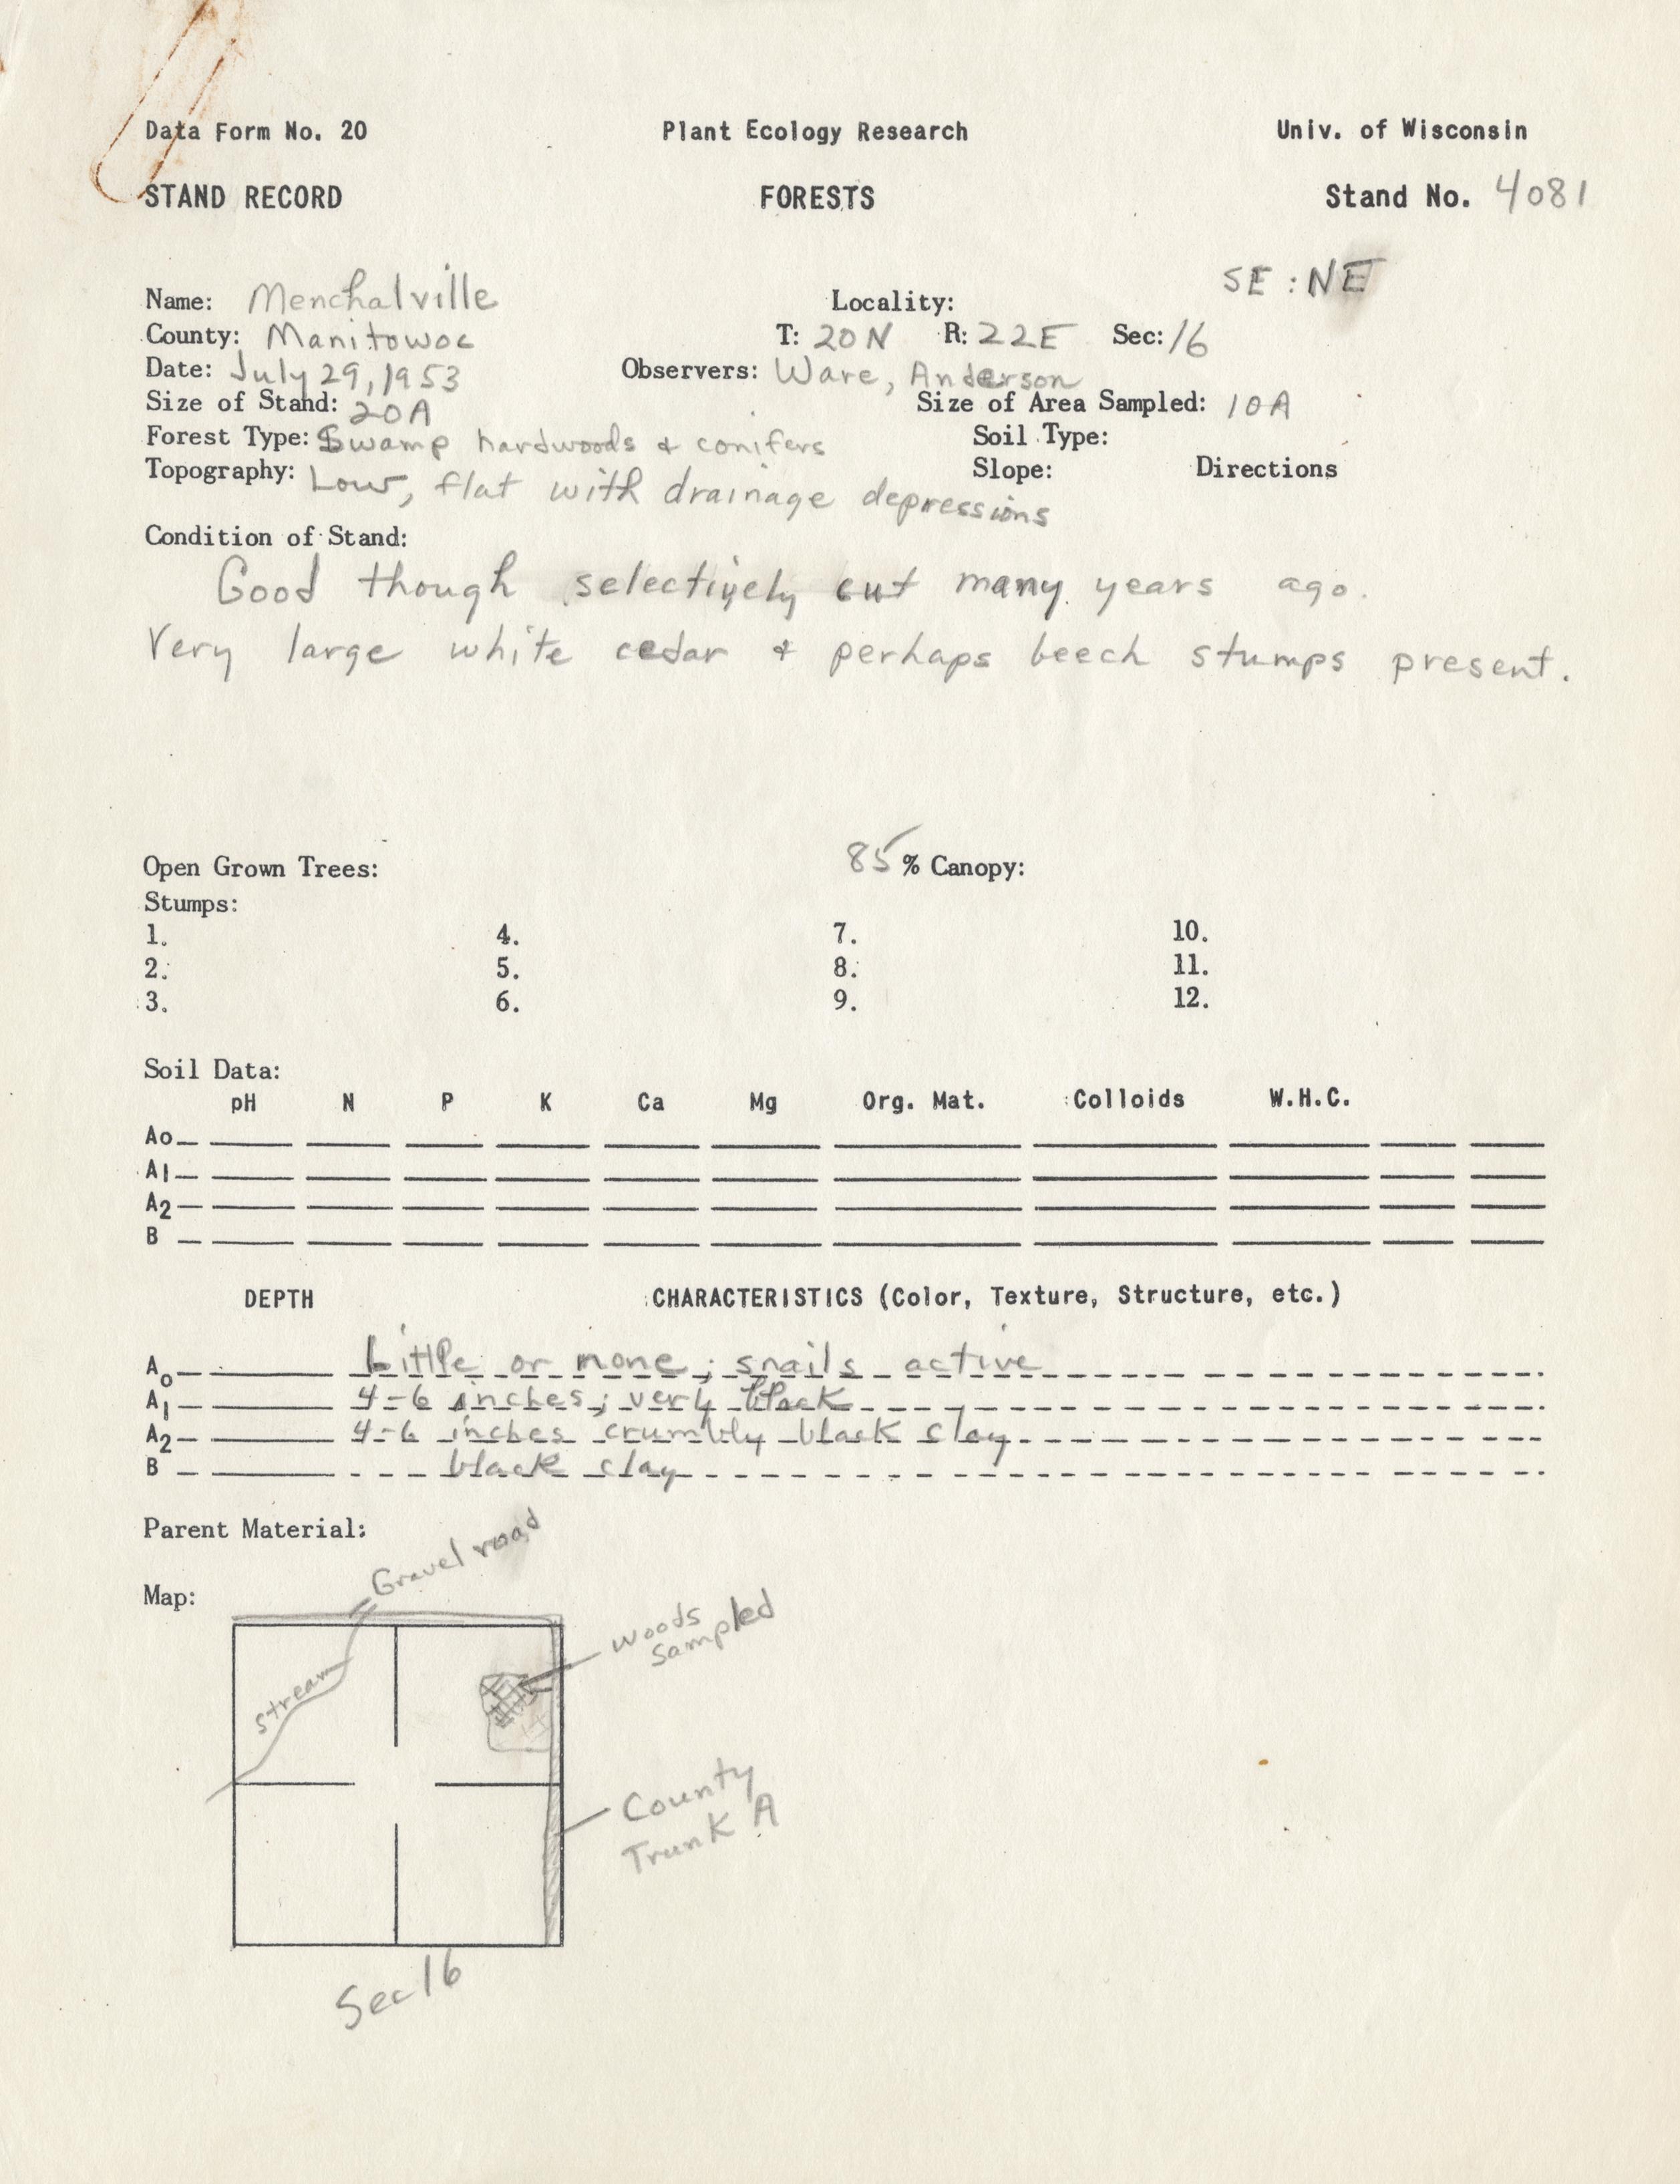 Data Form No. 20 Plant Ecology Research Univ. of Wisconsin
STAND RECORD FORESTS Stand No. 4081
SE : NE
Name: Menchalville Locality:
County: Manitowoc T: 20N R: 22E Sec: 16
Date: July 29, 1953 Observers: Ware, Anderson
Size of Stand: 20A Size of Area Sampled: 10A
Forest Type: Swamp hardwoods & conifers Soil Type:
Topography: Low, flat with drainage depressions Slope: Directions
Condition of Stand:
Good though selectively cut many years ago.
Very large white cedar & perhaps beech stumps present.
Open Grown Trees: 85 % Canopy:
Stumps:
1. 4. 7. 10.
2. 5. 8. 11.
3. 6. 9. 12.
Soil Data:
pH N P K Ca Mg Org. Mat. Colloids W.H.C.
Ao
A1
A2
B
DEPTH CHARACTERISTICS (Color, Texture, Structure, etc.)
Ao Little or none; snails active
A1 4-6 inches; very black
A2 4-6 inches crumbly black clay
B black clay
Parent Material:
Gravel road
Map:
Woods
Sampled
stream
County
Trunk A
Sec 16